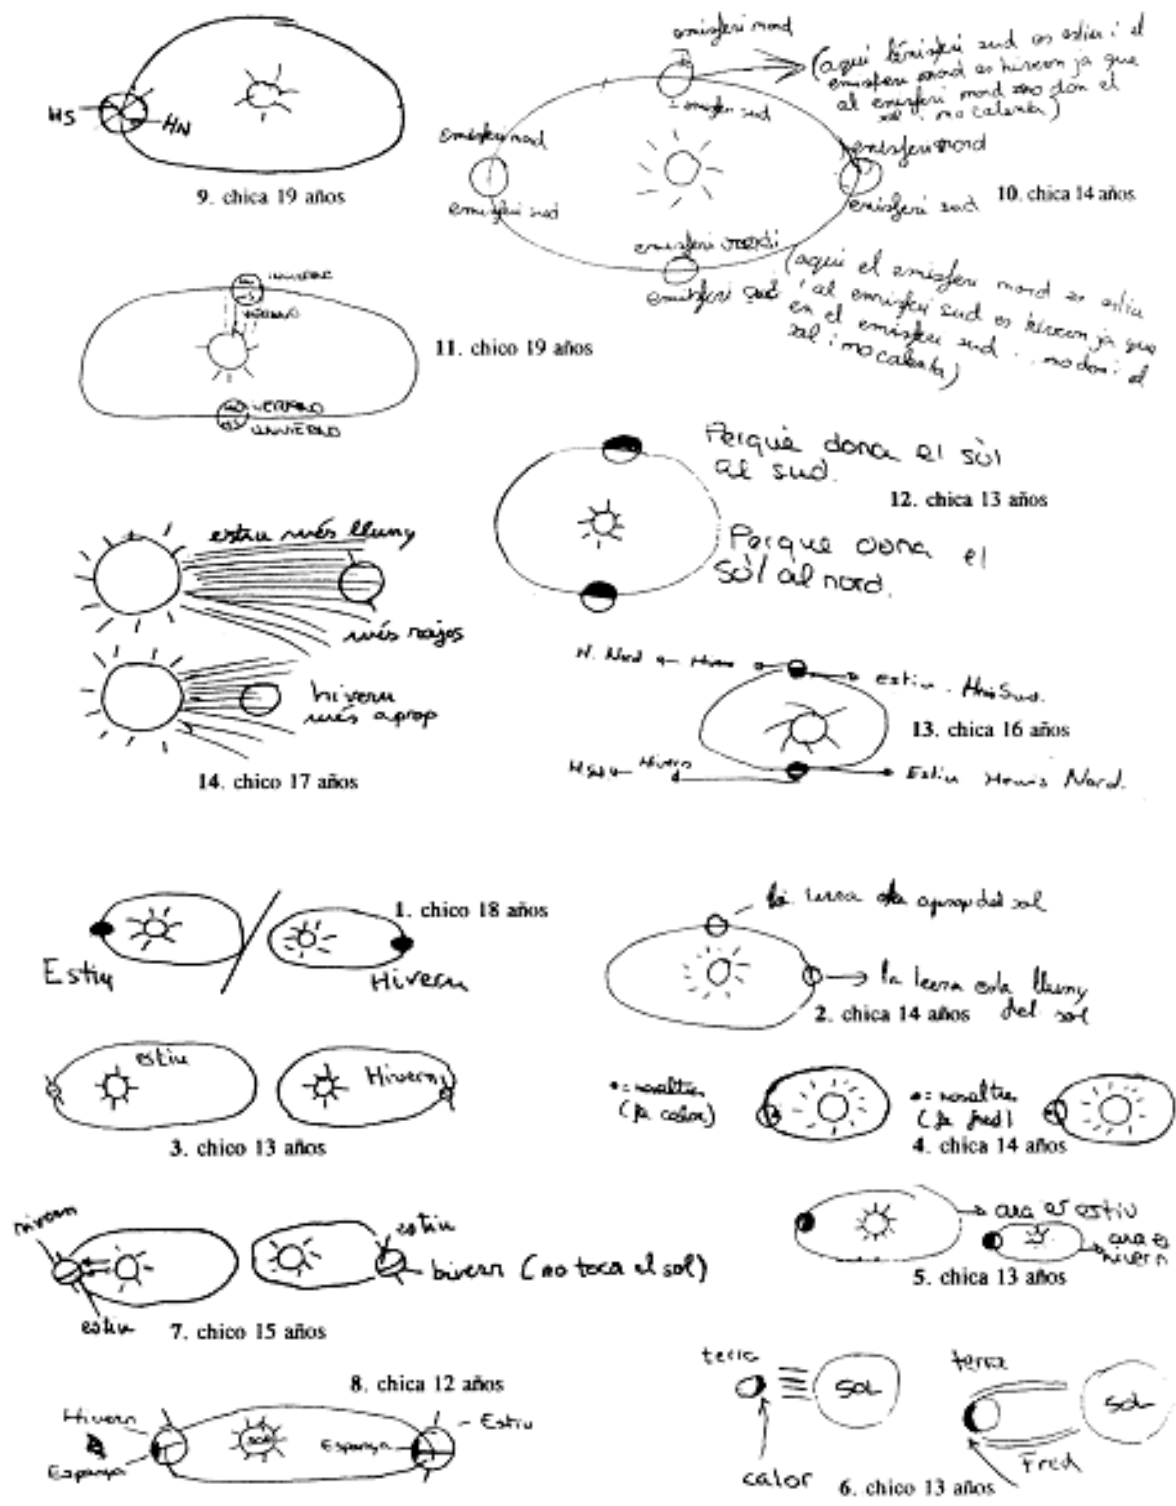 HS
HN
9. chica 19 años
emisferi nord
emisferi sud
(aquí l'emisferi sud es estiu i el
emisferi nord es hivern ja que
al emisferi nord no don el
sol i no calenta)
emisferi nord
emisferi sud
emisferi nord
emisferi sud
10. chica 14 años
emisferi nord
emisferi sud
(aquí el emisferi nord es estiu
i al emisferi sud es hivern ja que
en el emisferi sud no don el
sol i no calenta)
INVIERNO
VERANO
11. chico 19 años
VERANO
INVIERNO
Perquè dona el sòl
al sud.
12. chica 13 años
Perque dona el
sòl al nord.
estiu més lluny
més rajos
hivern
més aprop
14. chico 17 años
H. Nord
estiu. Hemis Sud.
13. chica 16 años
H Sud Hivern
Estiu Hemis Nord.
1. chico 18 años
Estiu
Hivern
la terra esta aprop del sol
la terra esta lluny
del sol
2. chica 14 años
estiu
Hivern
3. chico 13 años
•= nosaltres
(fa calor)
•= nosaltres
(fa fred)
4. chica 14 años
ara es estiu
ara es
hivern
5. chica 13 años
hivern
estiu
estiu
hivern (no toca el sol)
7. chico 15 años
8. chica 12 años
Hivern
Espanya
SOL
Espanya
Estiu
terra
SOL
calor
terra
SOL
Fred
6. chico 13 años